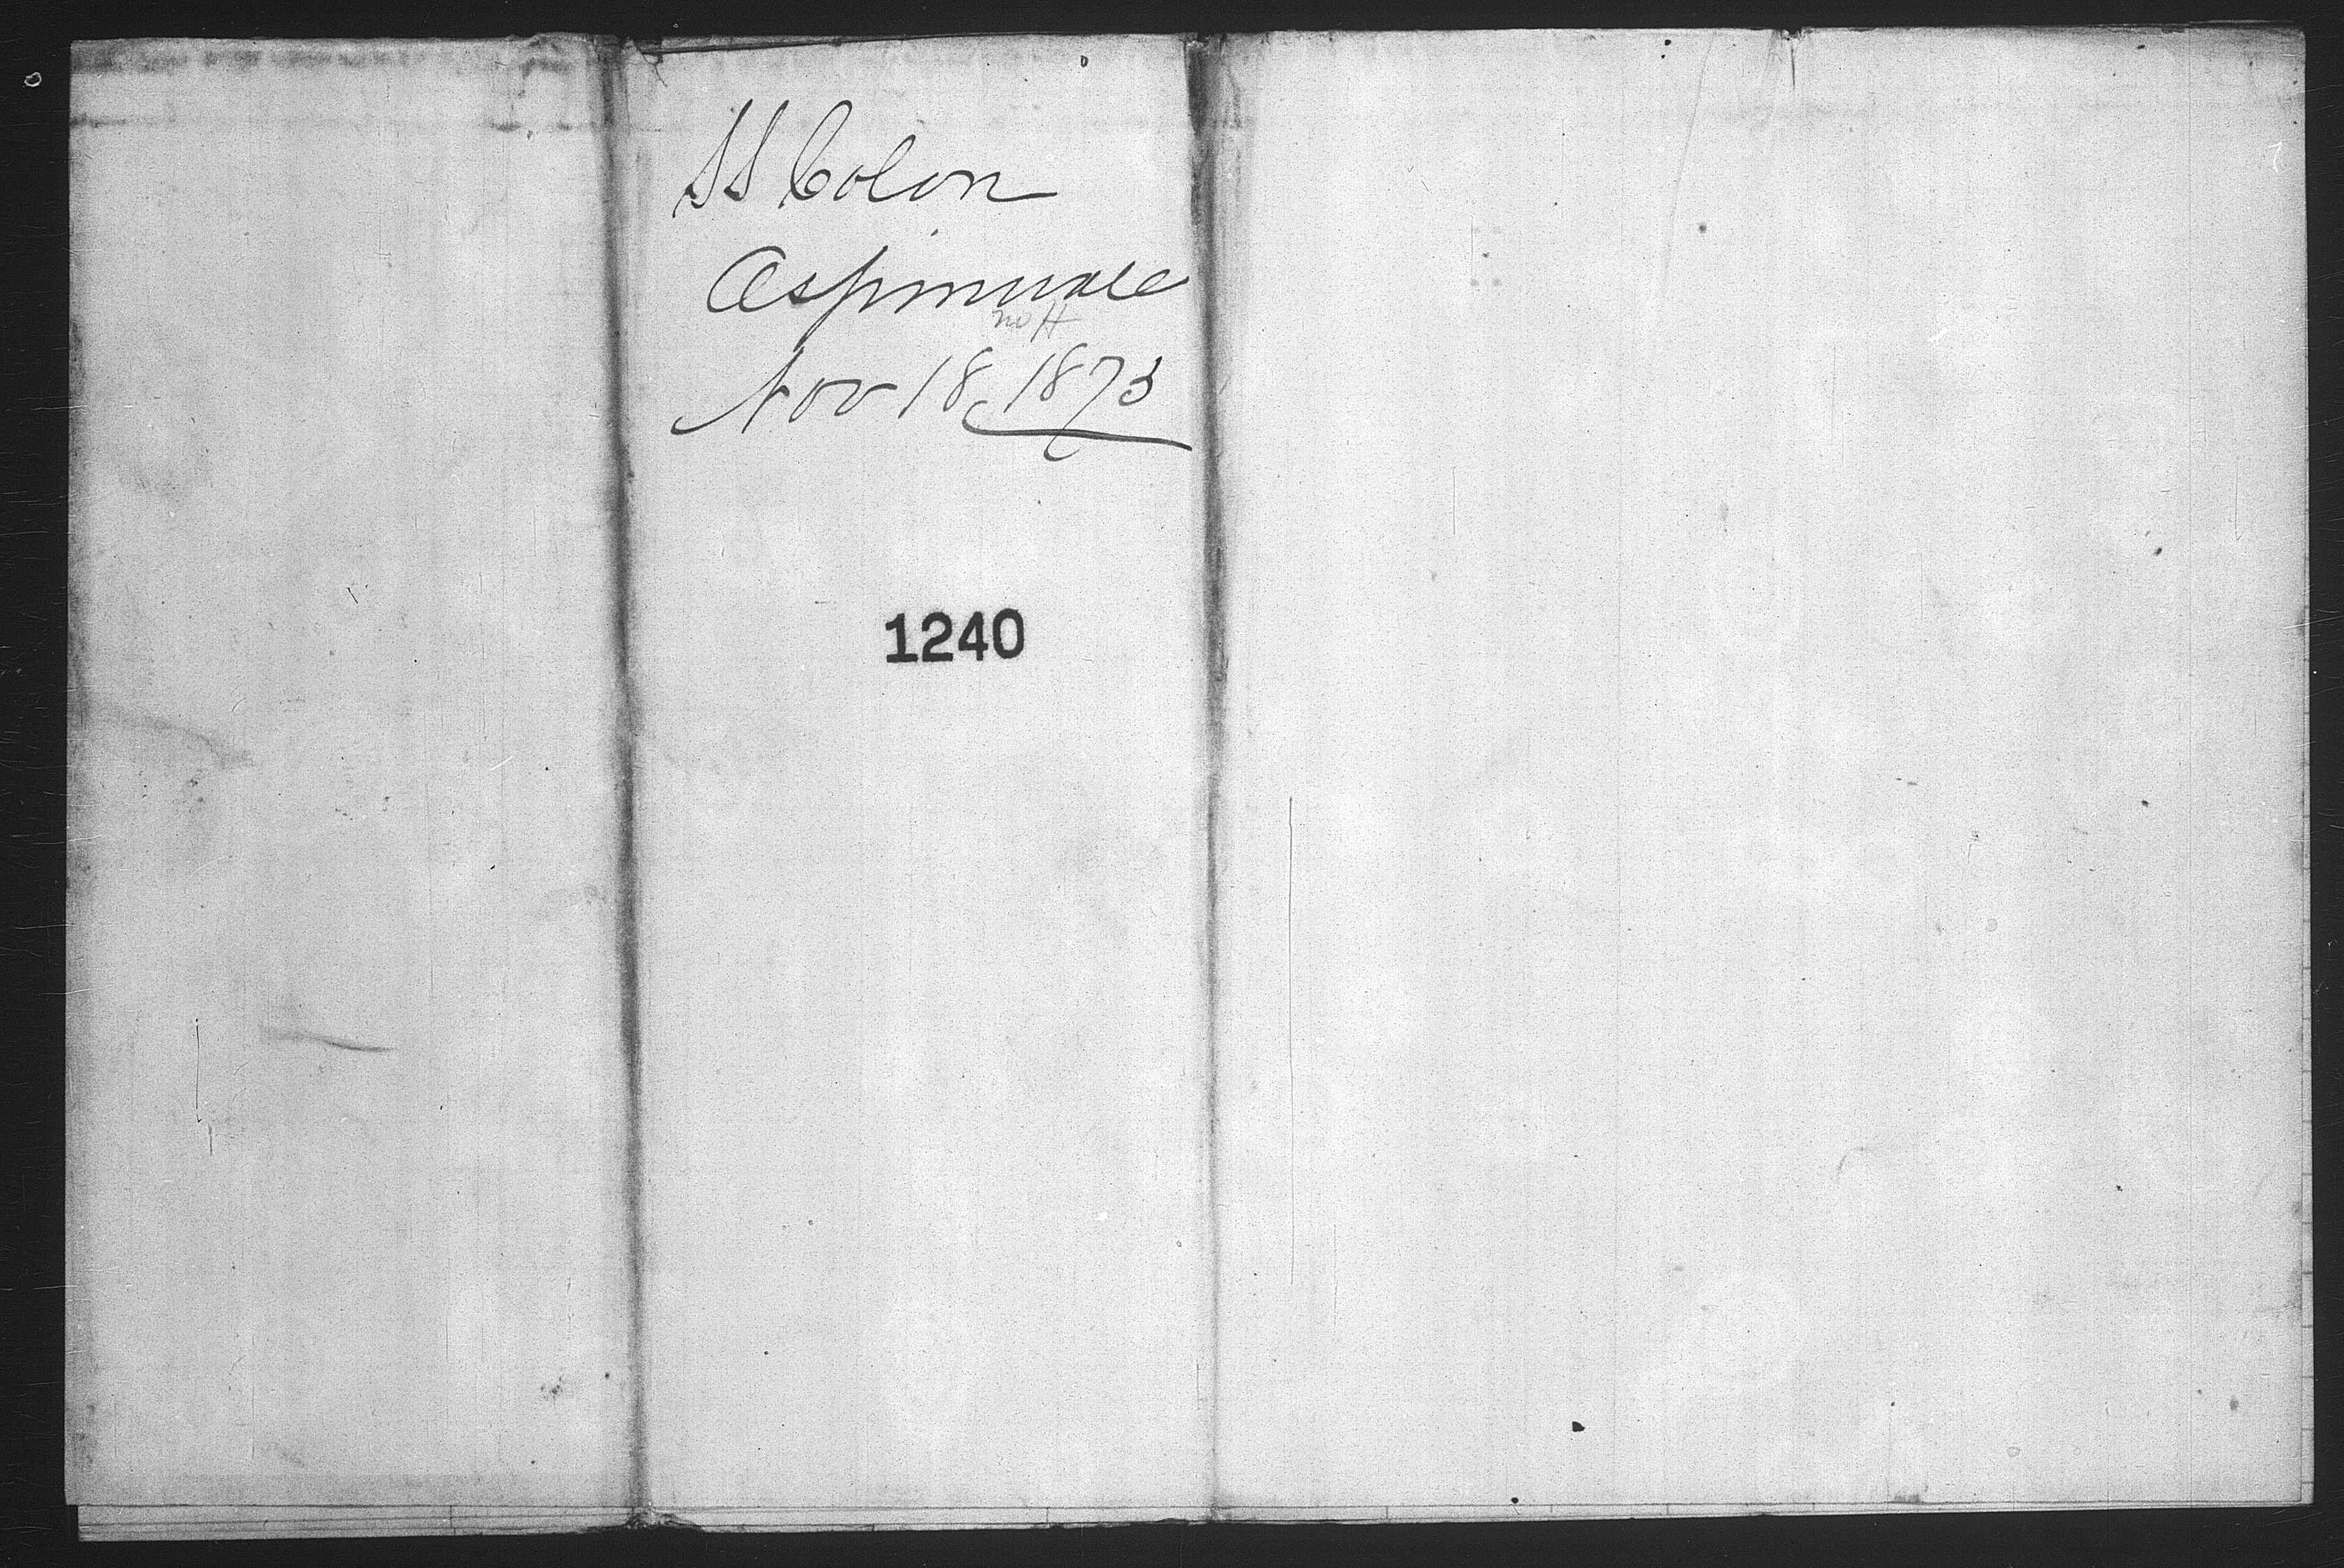 SS Colon
Aspinwall
Nov 18, 1873
1240